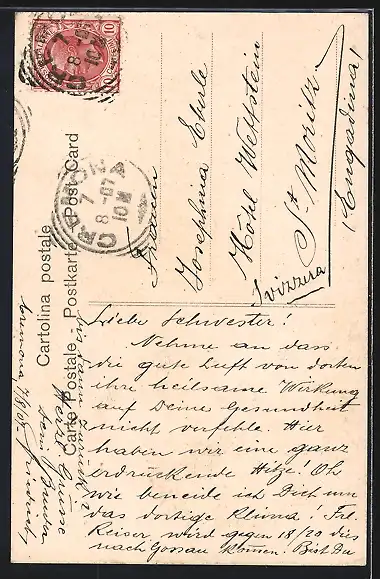 Cartolina postale
Carte Postale Postkarte Post Card
10
CREMONA
7
8-07
10M
Fräulein
Josephina Eberle
Hôtel Wettstein
St. Moritz
(Engadina)
Svizzera
Liebe Schwester!
Nehme an dass
die gute Luft von dorten
ihre heilsame Wirkung
auf Deine Gesundheit
nicht verfehle. Hier
haben wir eine ganz
erdrückende Hitze! Oh
wie beneide ich Dich um
das dortige Klima! Frl.
Keiser, wird gegen 18/20 dies
nach Gossau kommen. Bist Du
bis dann zurück?
Herzl. Grüsse
Dein Bruder
Cremona, 7/8/07